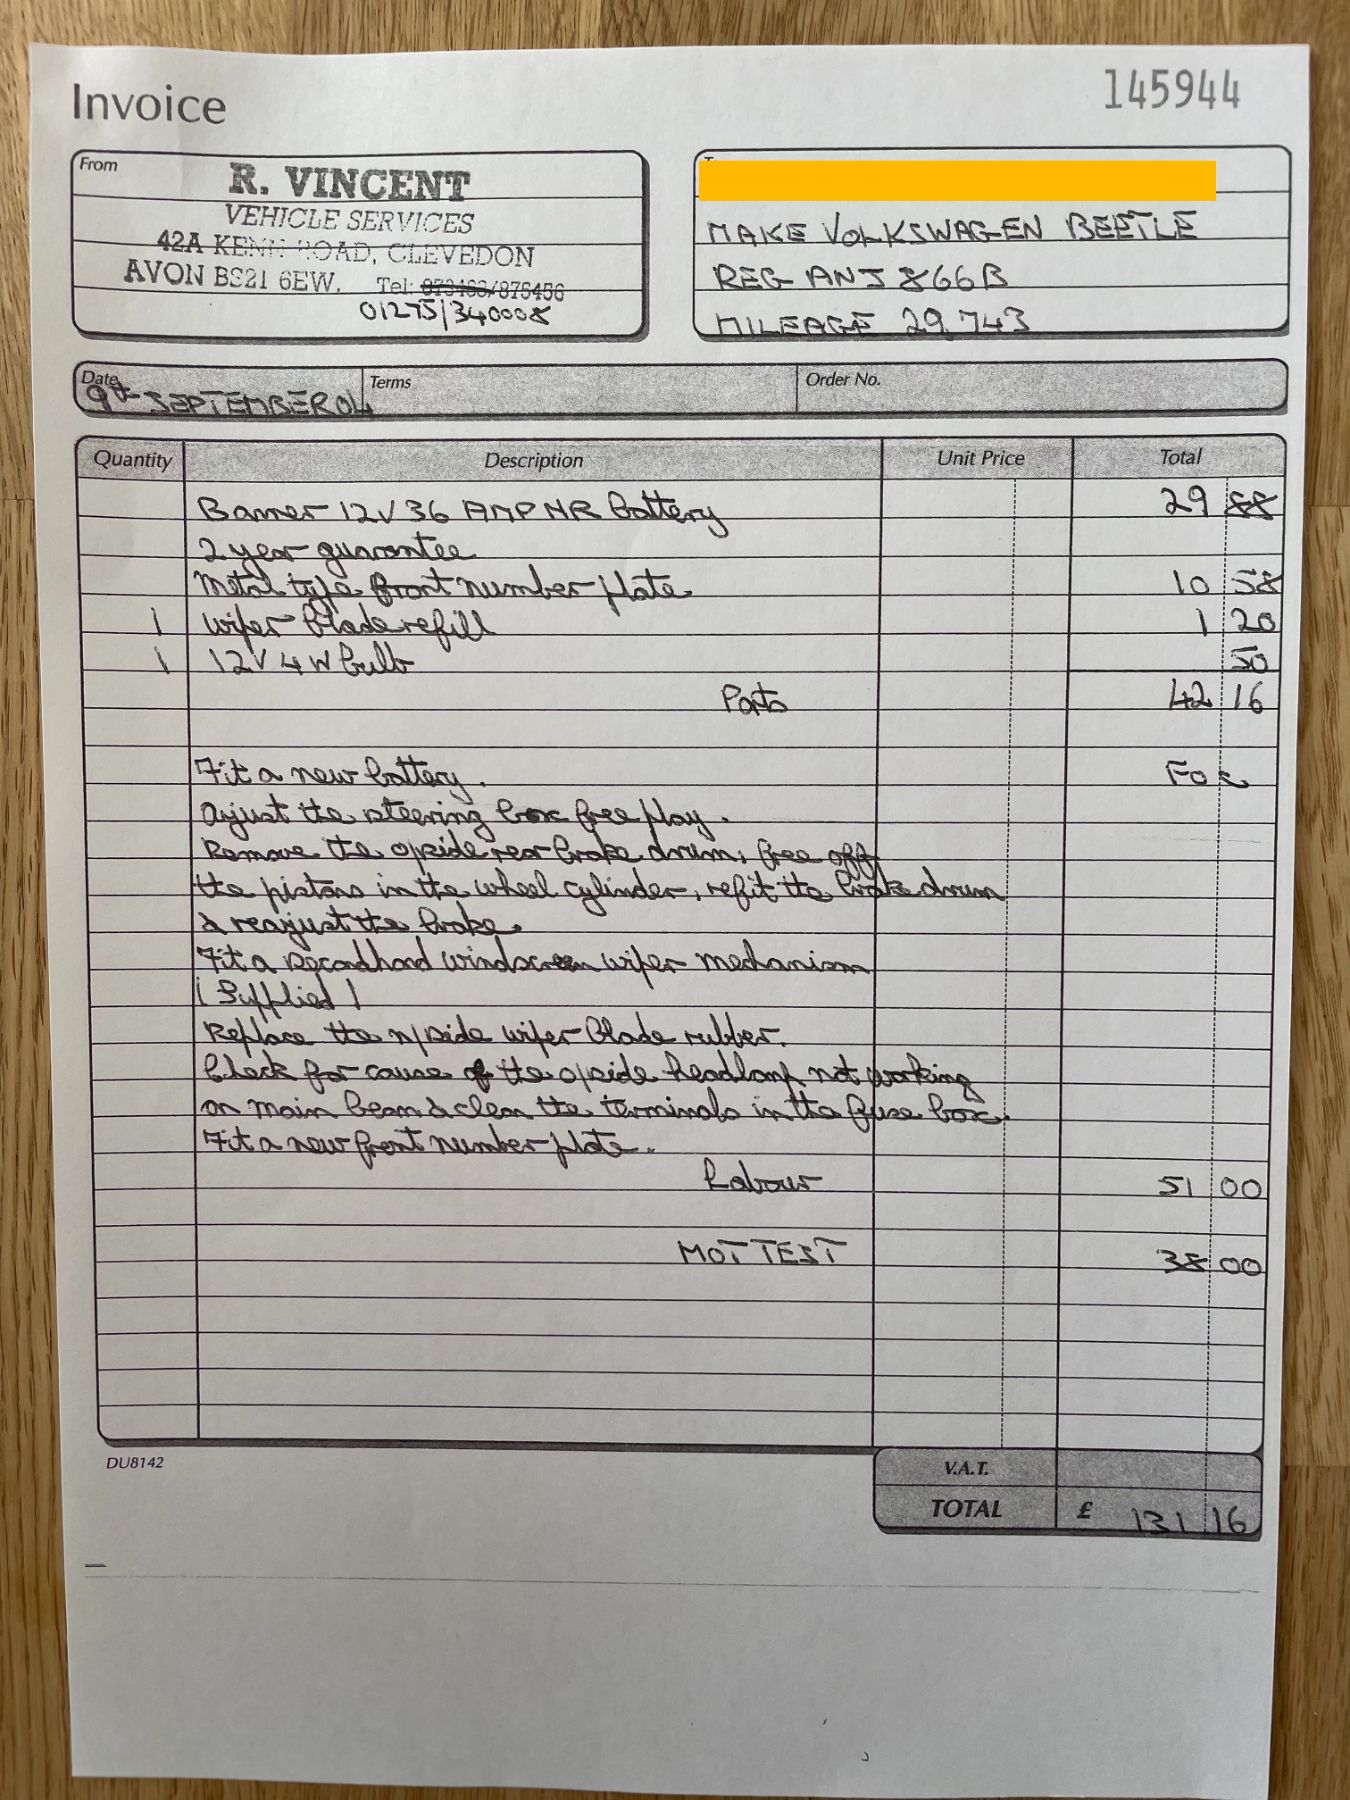 Invoice
145944
From
R. VINCENT
VEHICLE SERVICES
42A KENN ROAD, CLEVEDON
AVON BS21 6EW. Tel: /876456
01275/340008
MAKE VOLKSWAGEN BEETLE
REG ANJ 866B
MILEAGE 29,743
Date
9th SEPTEMBER 04
Terms
Order No.
Quantity Description Unit Price Total
Banner 12V 36 AMP HR battery 29 88
2 year guarantee
Metal type front number plate 10 58
1 wiper blade refill 1 20
1 12V 4W bulb 50
Parts 42 16
Fit a new battery. FOC
Ajust the steering box free play.
Remove the o/side rear brake drum, free off
the pistons in the wheel cylinder, refit the brake drum
& reajust the brake.
Fit a secondhand windscreen wiper mechanism
( Supplied )
Replace the n/side wiper blade rubber.
Check for cause of the o/side headlamp not working
on main beam & clean the terminals in the fuse box.
Fit a new front number plate.
Labour 51 00
MOT TEST 38 00
DU8142
V.A.T.
TOTAL £ 131 16